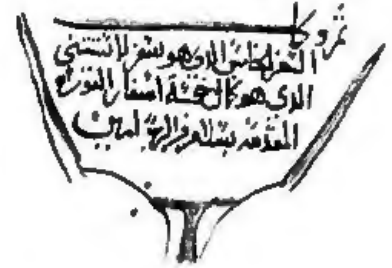 تم و
السفر الخامس الذى هو سفر الاستثنى
الذى هو كمال خمسة اسفار التوراه
المقدسه بسلام الرب امين